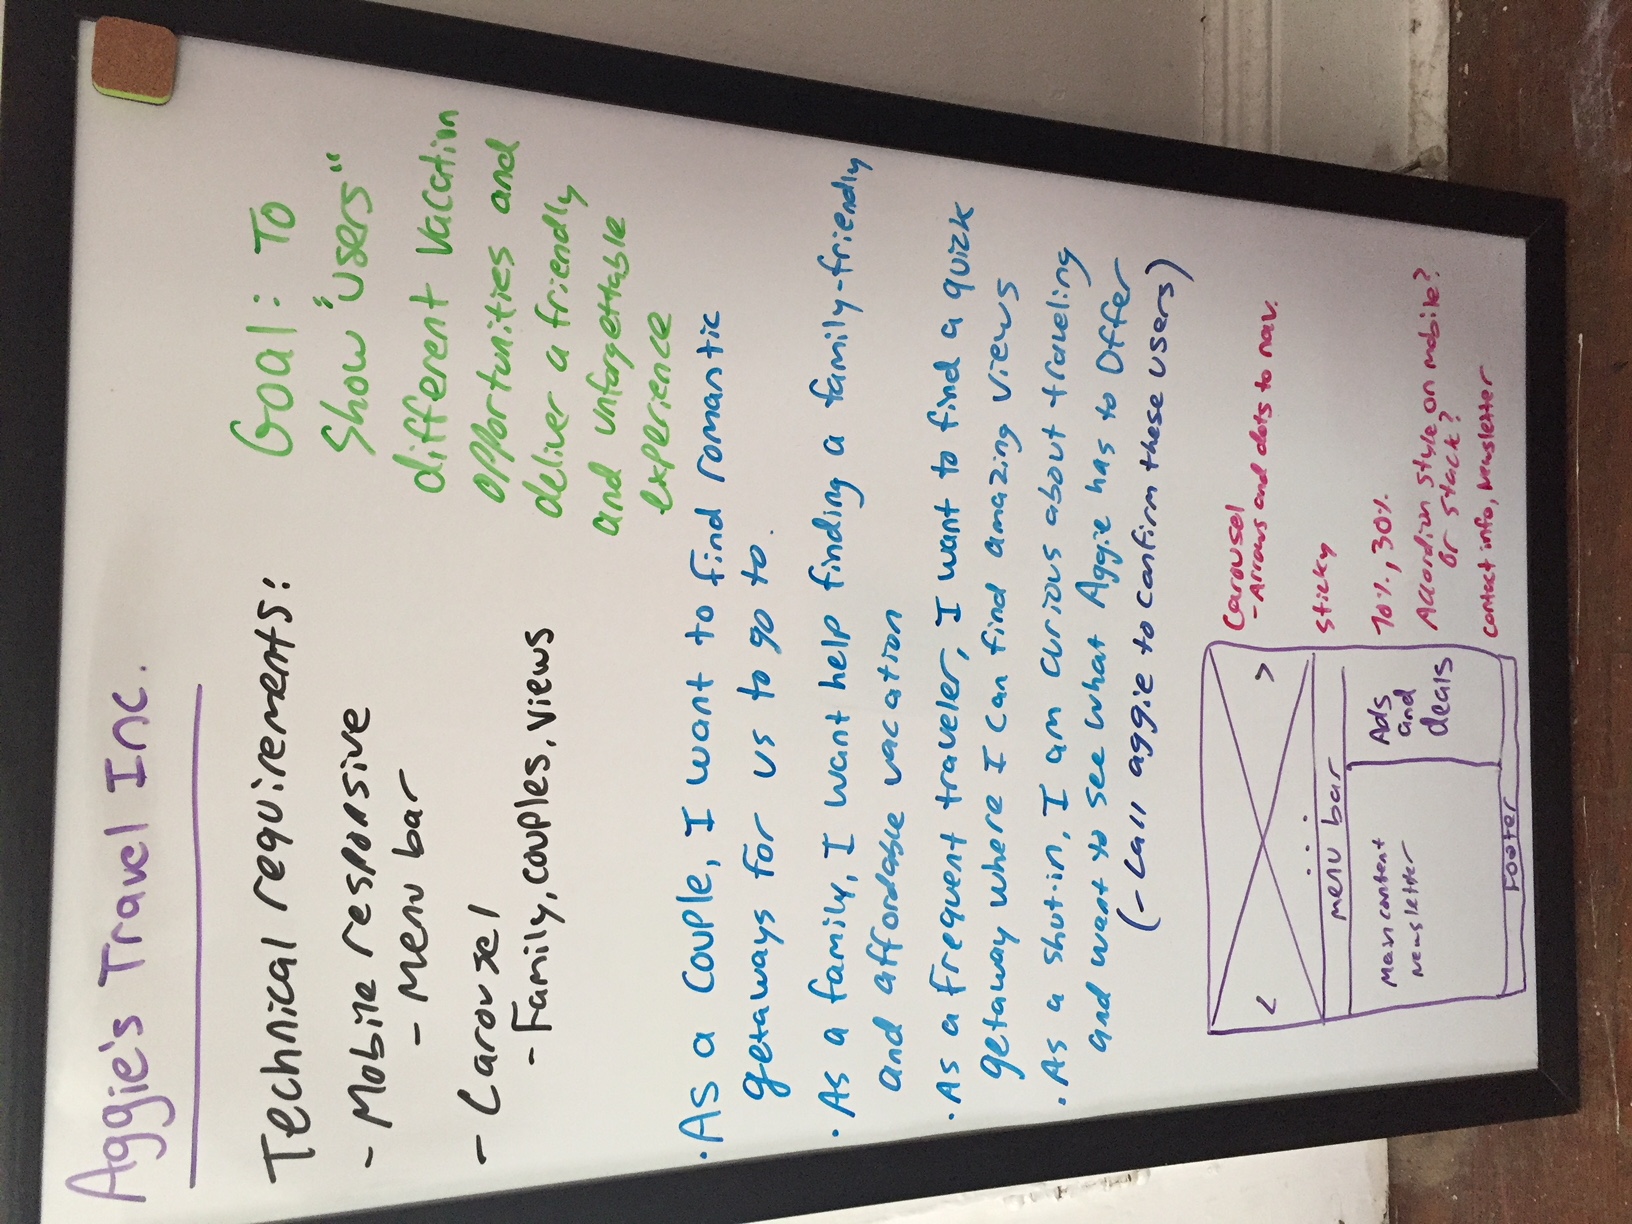 Aggie's Travel Inc.
Technical requirements:
- Mobile responsive
- Menu bar
- Carousel
- Family, couples, views
Goal: To
Show "users"
different vacation
opportunities and
deliver a friendly
and unforgettable
experience
· As a couple, I want to find romantic
getaways for us to go to.
· As a family, I want help finding a family-friendly
and affordable vacation
· As a frequent traveler, I want to find a quick
getaway where I can find amazing views
· As a shut-in, I am curious about traveling
and want to see what Aggie has to offer
(- Call aggie to confirm these users)
< >
...
menu bar
Main content
Newsletter
Ads
and
deals
Footer
Carousel
- Arrows and dots to nav.
sticky
70%, 30%
Accordion style on mobile?
or stack?
contact info, Newsletter